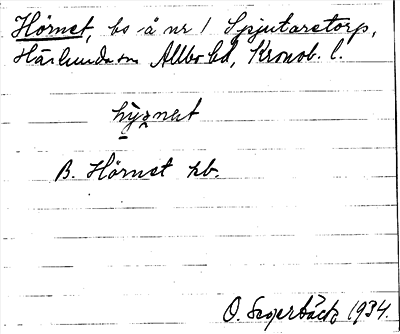 Hörnet, bs å nr 1 Spjutaretorp,
Härlunda sn Allbo hd, Kronob. l.
B. Hörnet hb.
O. 1934.